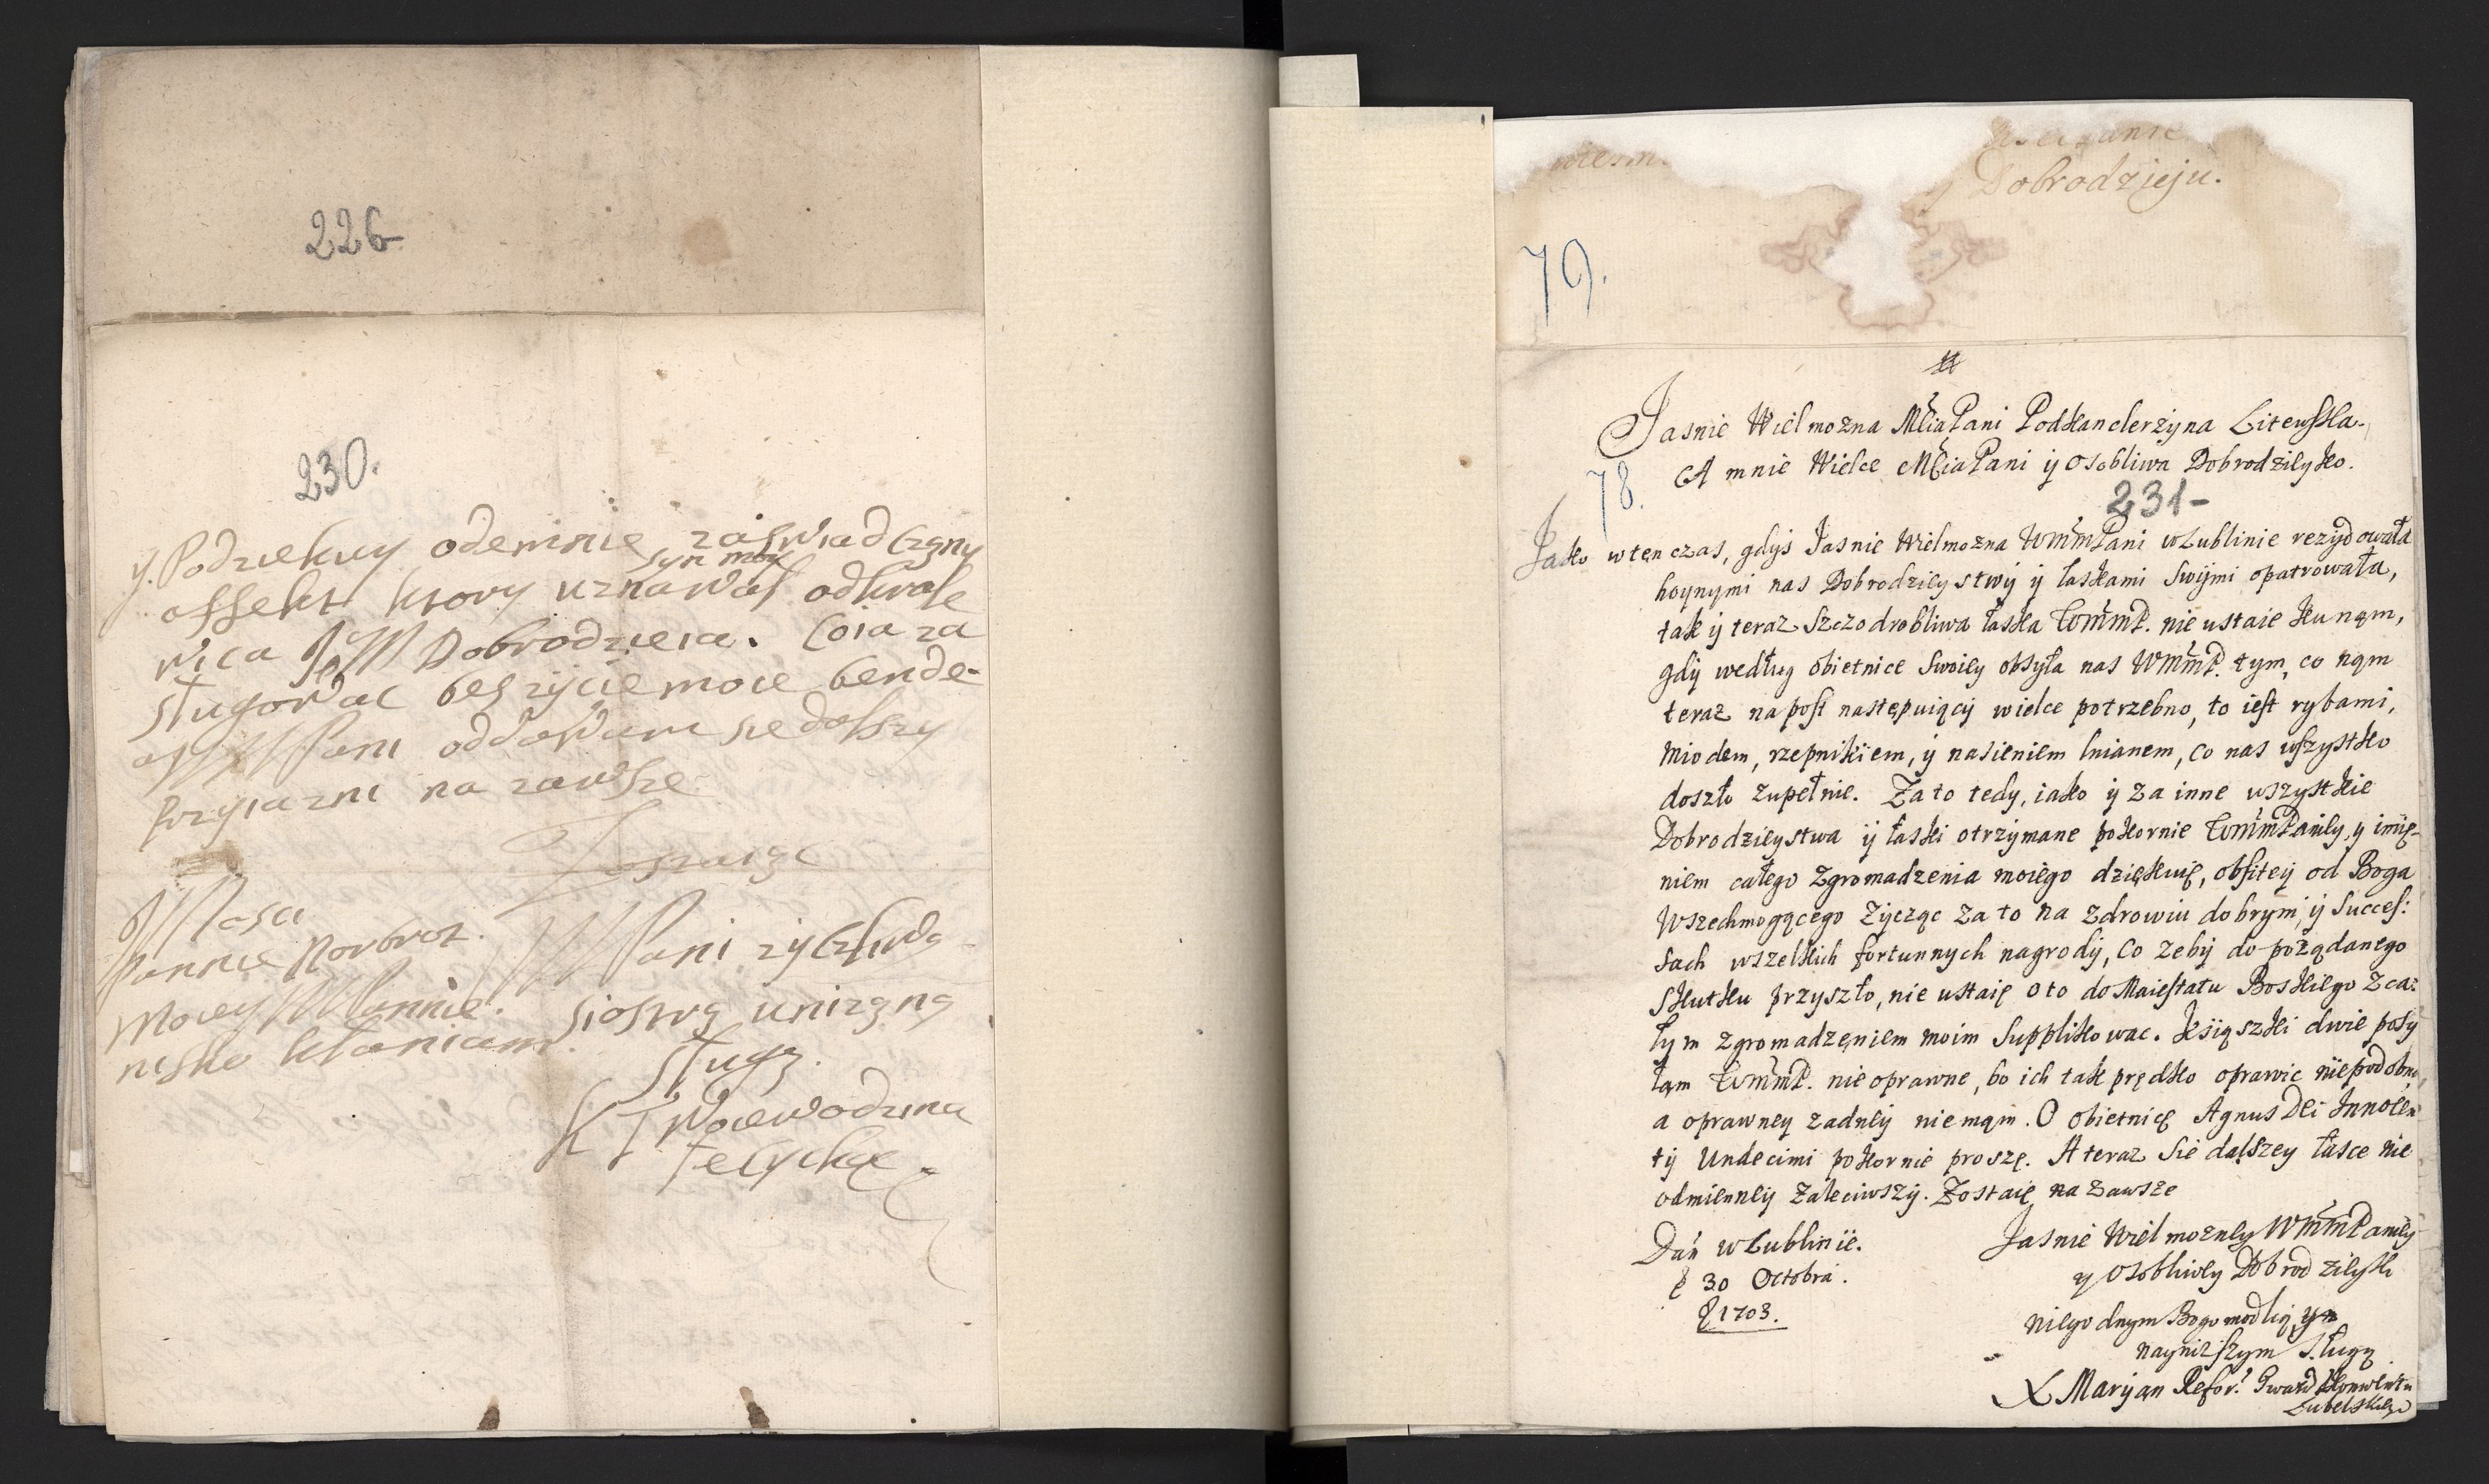 226
230.
y. Podziekuy odemnie zaswiadczony
syn moy
affekt ktory uznawał odkrole
wica JoM Dobrodzieia. Coia za
sługowac beszycie moie bende
Pani oddawam sie dalszy
przyiazni na zawsze
Zostaige
Pannie Norbrot.
WMPani zyczliwa
Moiey WPannie.
siostrą unizoną
nisko kłaniam.
sługą.
K T Woiewodzina
Dobrodzieju.
79.
Jasnie Wielmozna Mcia Pani Podkanclerzyna Litewska.
A mnie Wielce Mcia Pani y Osobliwa Dobrodzieyko.
78.
231-
Jako w ten czas, gdys Jasnie Wielmozna WmmPani w Lublinie rezydowała
hoynymi nas Dobrodzieystwy y łaskami Swymi opatrowała,
tak y teraz Szczodrobliwa łaska WmmP. nie ustaie ku nąm,
gdy według obietnice Swoiey obsyła nas WmmP. tym, co nąm
teraz na post nastepuiący wielce potrzebno, to iest rybami,
Miodem, rzepnikiem, y nasieniem lnianem, co nas wszystko
doszło zupełnie. Za to tedy, iako y za inne wszystkie
Dobrodzieystwa y łaski otrzymane pokornie WmmPaniey, y imię-
niem całego Zgromadzenia moiego dziękuię, obfitey od Boga
Wszechmogącego Zycząc za to na Zdrowiu dobrym, y Succes:
sach wszelkich fortunnych nagrody, Co zeby do pożądanego
Skutku przyszło, nie ustaię o to do Maiestatu Boskiego z ca:
łym zgromadzeniem moim Supplikowac. Ksiąszki dwie posy
łąm WmmP. nie oprawne, bo ich tak prędko oprawic niepodobna,
a oprawney zadney nie mąm. O obietnicę Agnus Dei Innocen
ty Undecimi pokornie proszę. A teraz Sie dalszey łasce nie
odmienney zaleciwszy. Zostaię na zawsze
Dan w Lublinie.
Jasnie Wielmozney WmmPaniey
30 Octobra.
y Osobliwey Dobrodzieyki
1703.
niegodnym Bogomodlią y
nayniższym Sługą
X Maryan Refor: Gward Konwentu
Lubelskiego